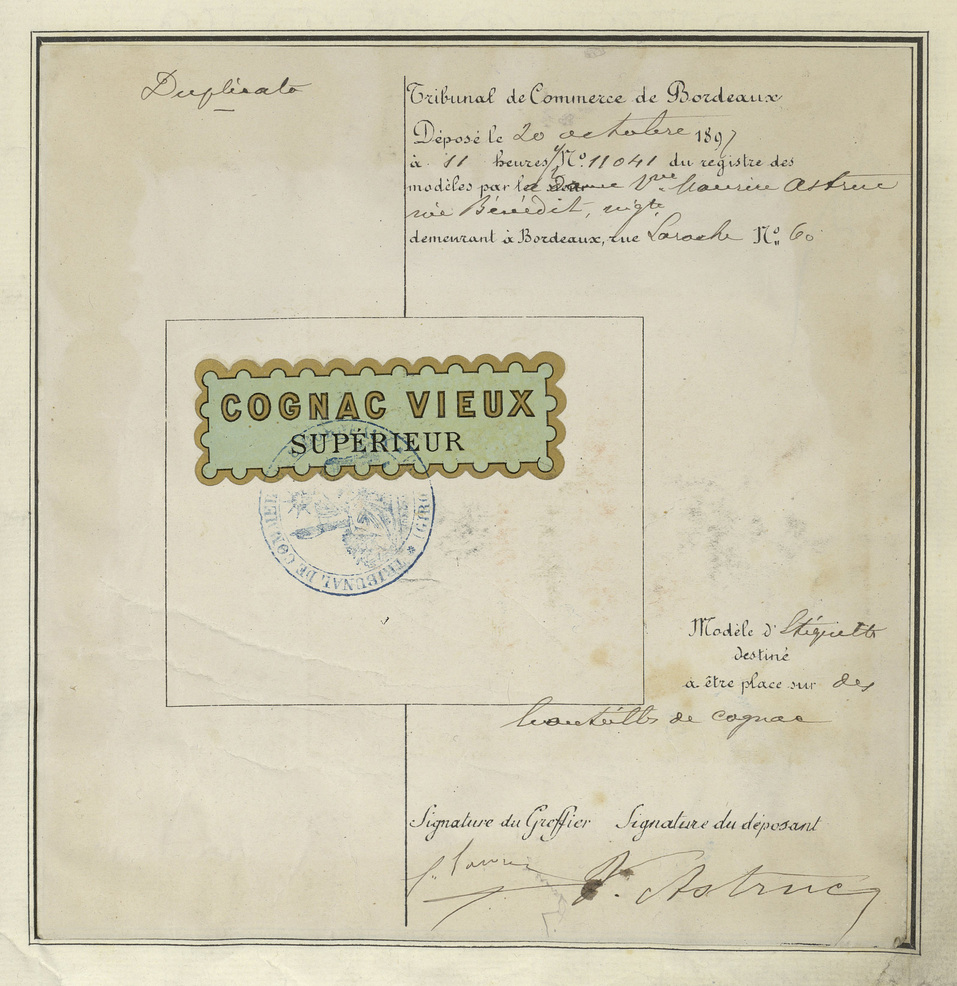 Duplicata
Tribunal de Commerce de Bordeaux
Déposé le 20 octobre 1897
à 11 heures 1/2 N° 11041 du registre des
modèles par la dame Vve Maurice Astruc
née Bénédit, négte
demeurant à Bordeaux, rue Laroche N° 60
COGNAC VIEUX
SUPÉRIEUR
TRIBUNAL DE COMMERCE
Modèle d'Etiquette
destiné
à être placé sur des
bouteilles de cognac
Signature du Greffier Signature du déposant
V. Astruc